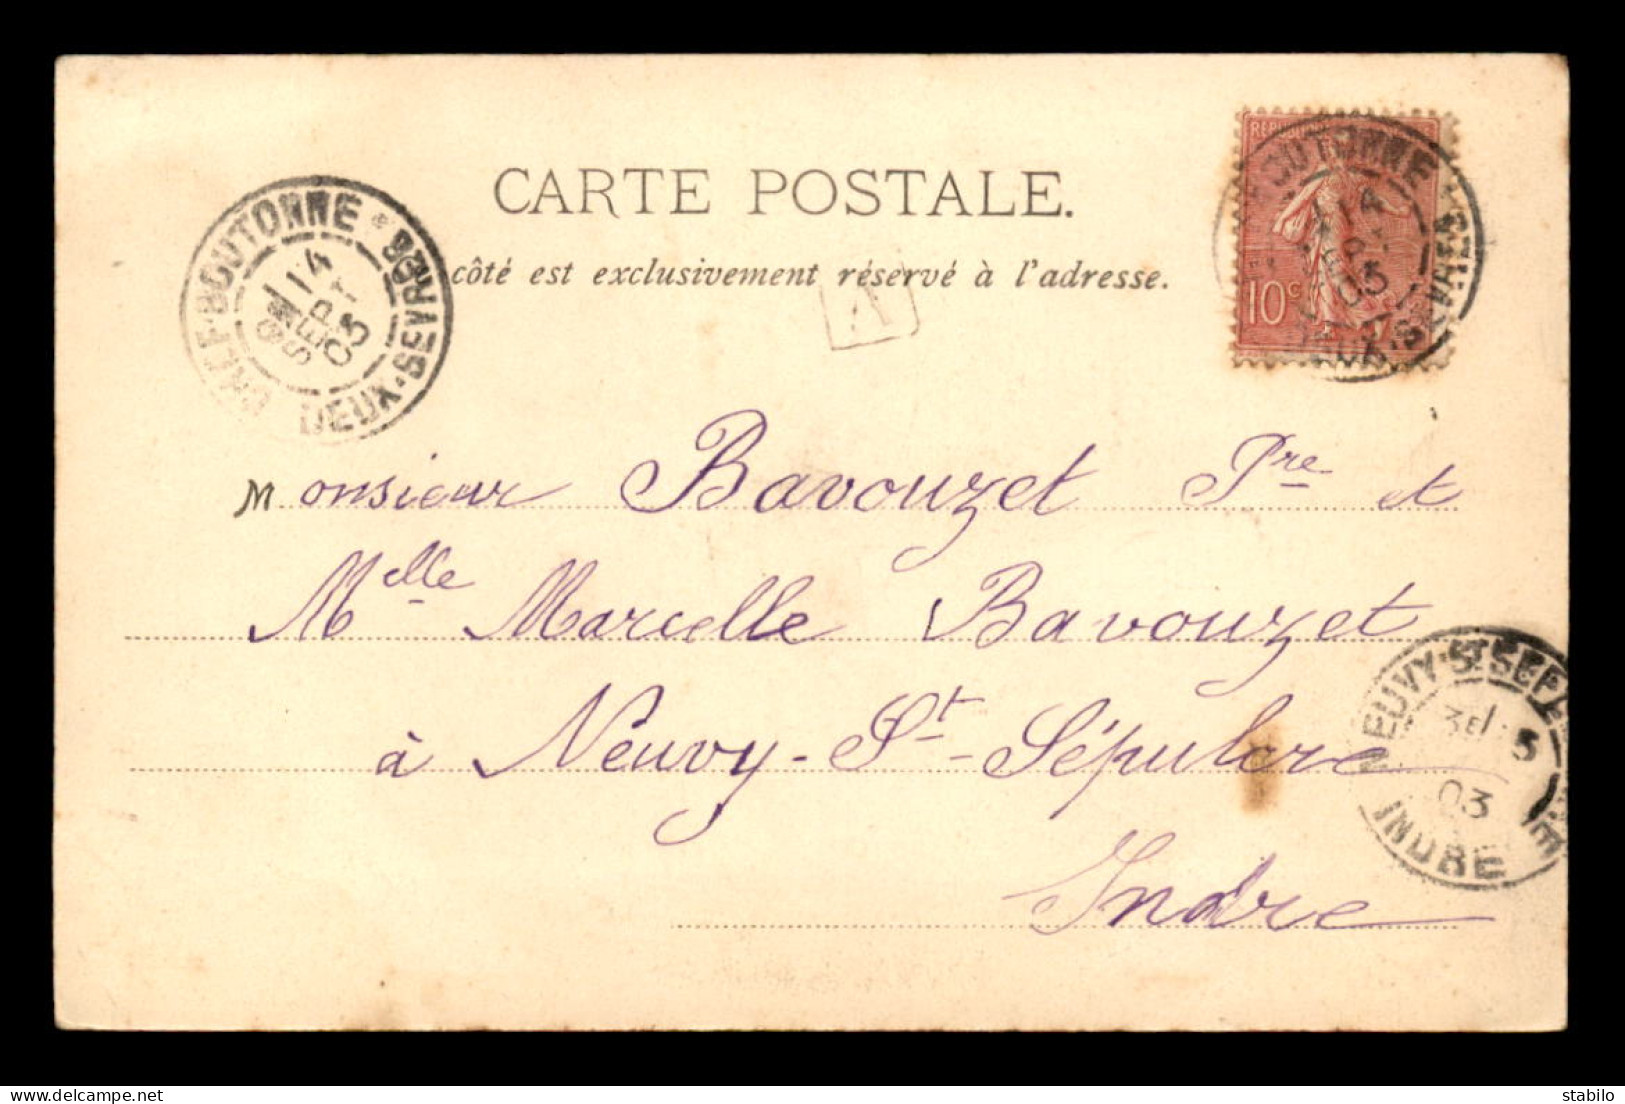 CARTE POSTALE.
côté est exclusivement réservé à l'adresse.
BOUTONNE * DEUX-SEVRES
14
SEPT
03
A
10c
BOUTONNE
14
03
DEUX-SEVRES
Monsieur Bavouzet Pre et
Melle Marcelle Bavouzet
à Neuvy-St-Sépulcre
Indre
NEUVY-ST SEP
03
INDRE
delcampe.net
stabilo